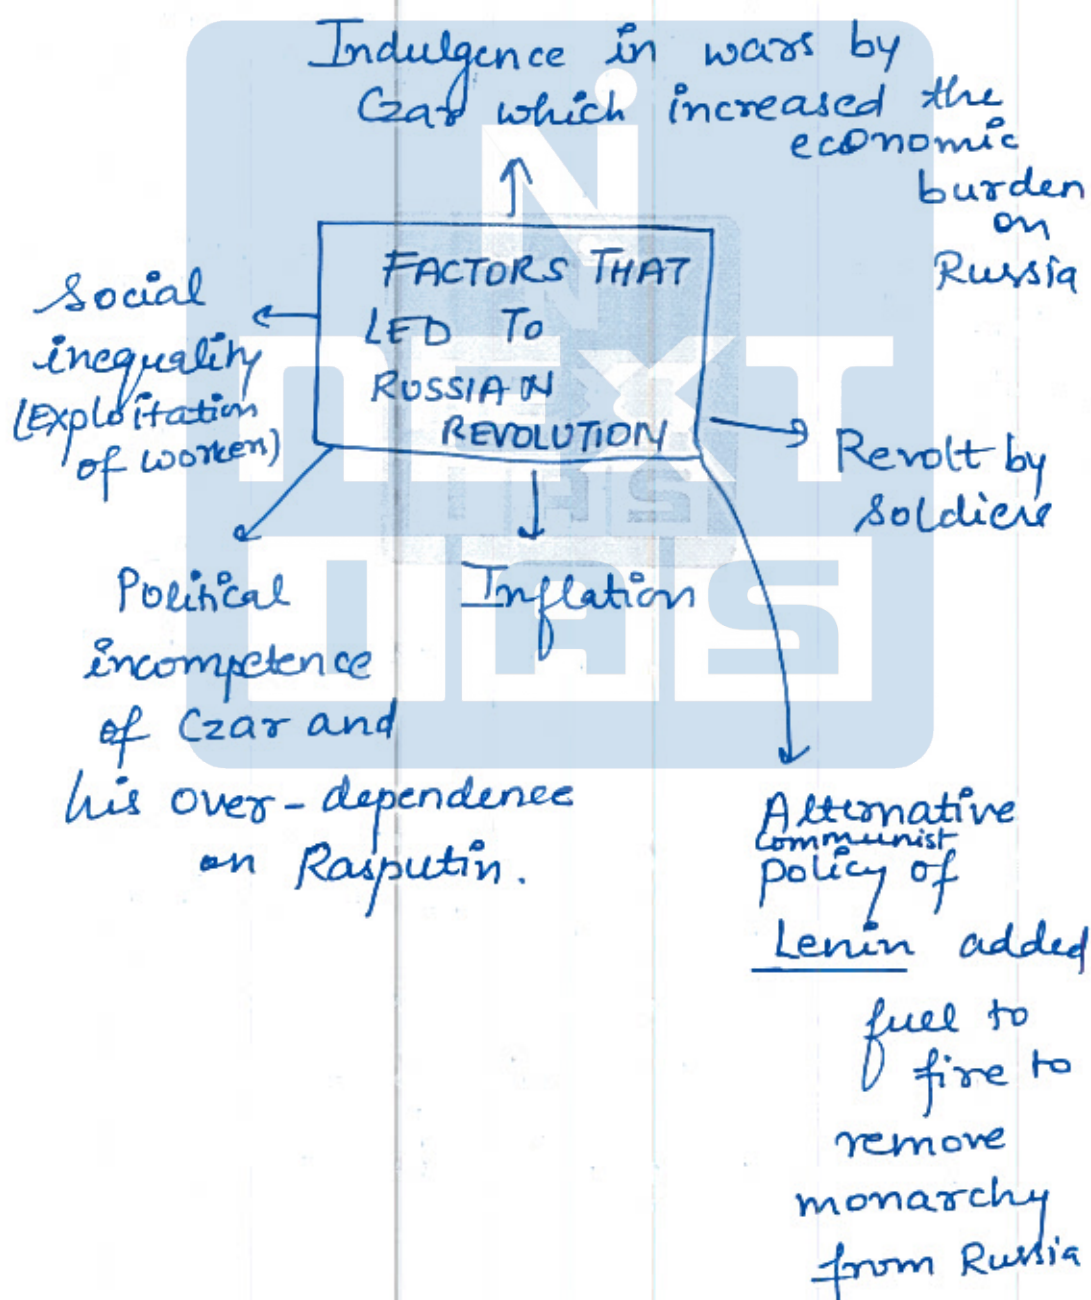 Indulgence in wars by
Czar which increased the
economic
burden
on
Russia
FACTORS THAT
LED TO
RUSSIAN
REVOLUTION
Social
inequality
(Exploitation
of worken)
Revolt by
soldiers
Political
incompetence
of Czar and
his over-dependence
on Rasputin.
Inflation
Alternative
communist
policy of
Lenin added
fuel to
fire to
remove
monarchy
from Russia
NEXT
IAS
IAS